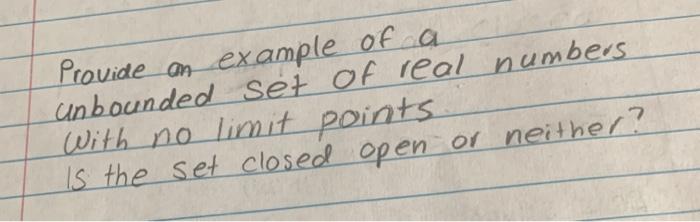 Provide an example of a
unbounded set of real numbers
with no limit points
Is the set closed open or neither?